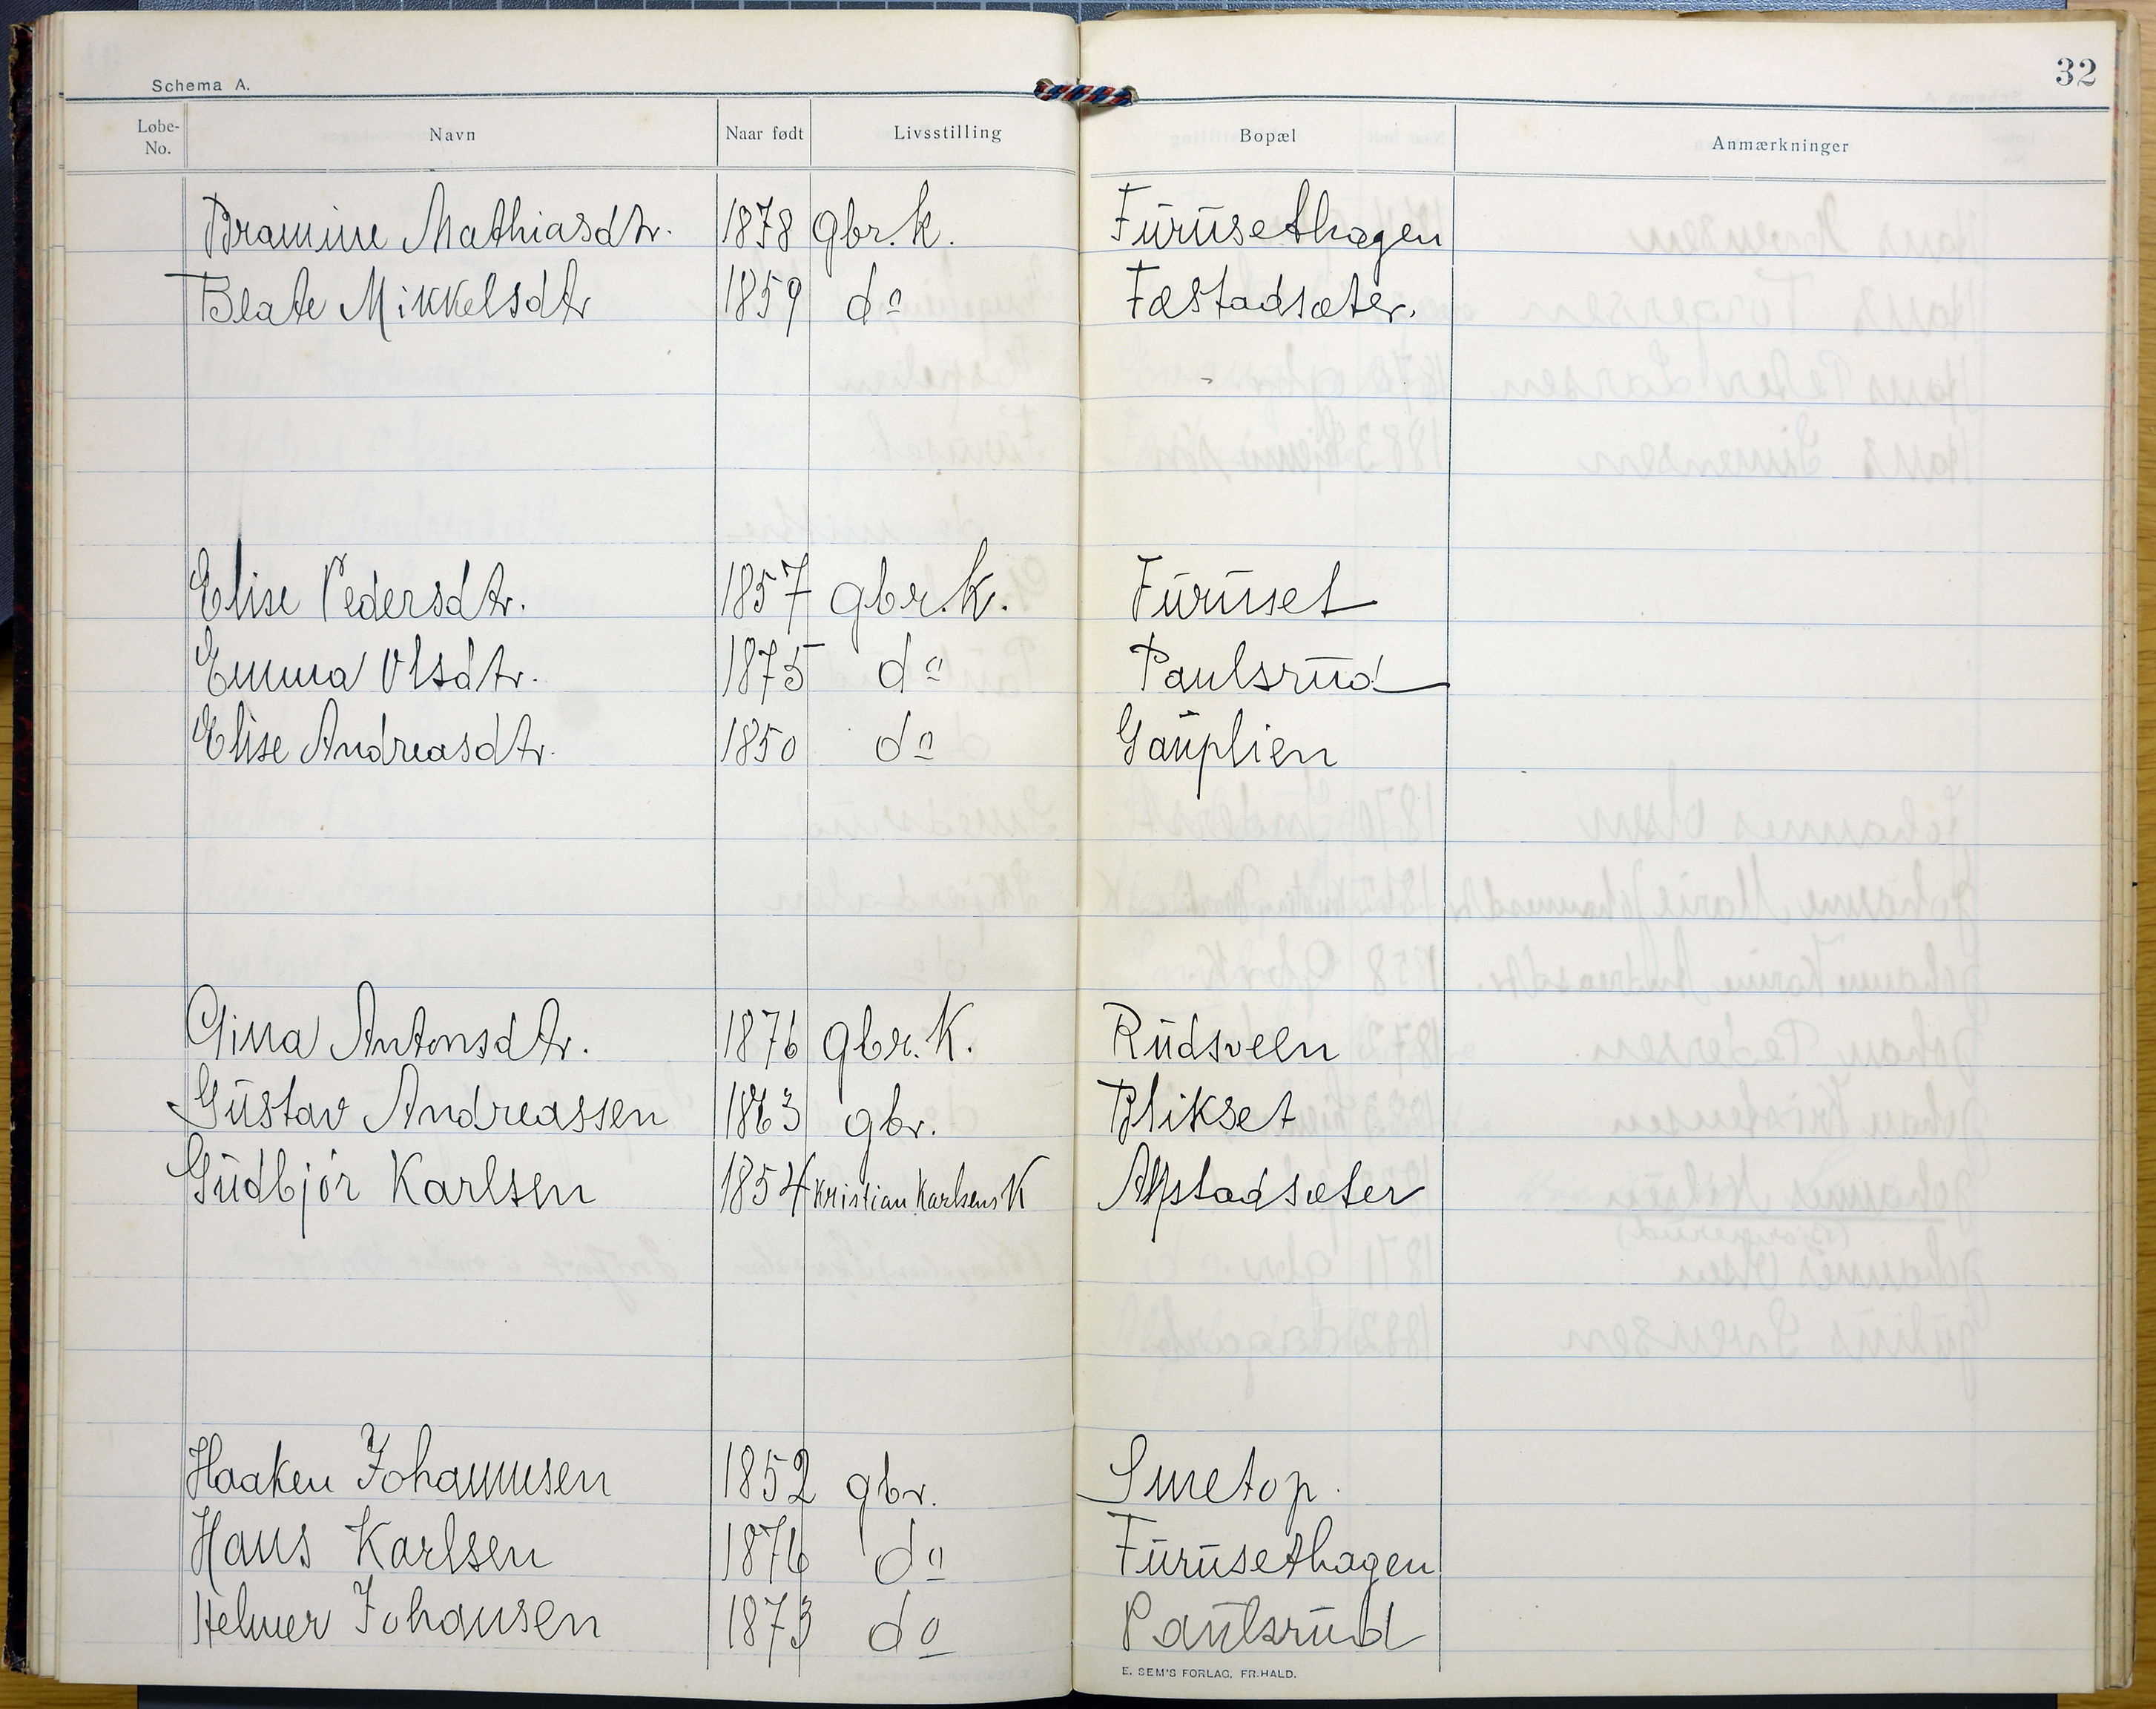 32
Schema A.
Løbe-No. Navn Naar født Livsstilling Bopæl Anmærkninger
Bramine Mathiasdtr. 1878 gbr. k. Furusethagen
Beate Mikkelsdtr 1859 do Fæstadsæter.
Elise Pedersdtr. 1857 gbr. k. Furuset
Emma Olsdtr. 1875 do Paulsrud
Elise Andreasdtr. 1850 do Gauplien
Gina Antonsdtr. 1876 gbr. K. Rudsveen
Gustav Andreassen 1863 gbr. Blikset
Gudbjør Karlsen 1854 Kristian Karlsens K Alpstadsæter
Haaken Johannnsen 1852 gbr. Smetop.
Hans Karlsen 1876 do Furusethagen
Helmer Johansen 1873 do Paulsrud
E. SEM'S FORLAG, FR.HALD.